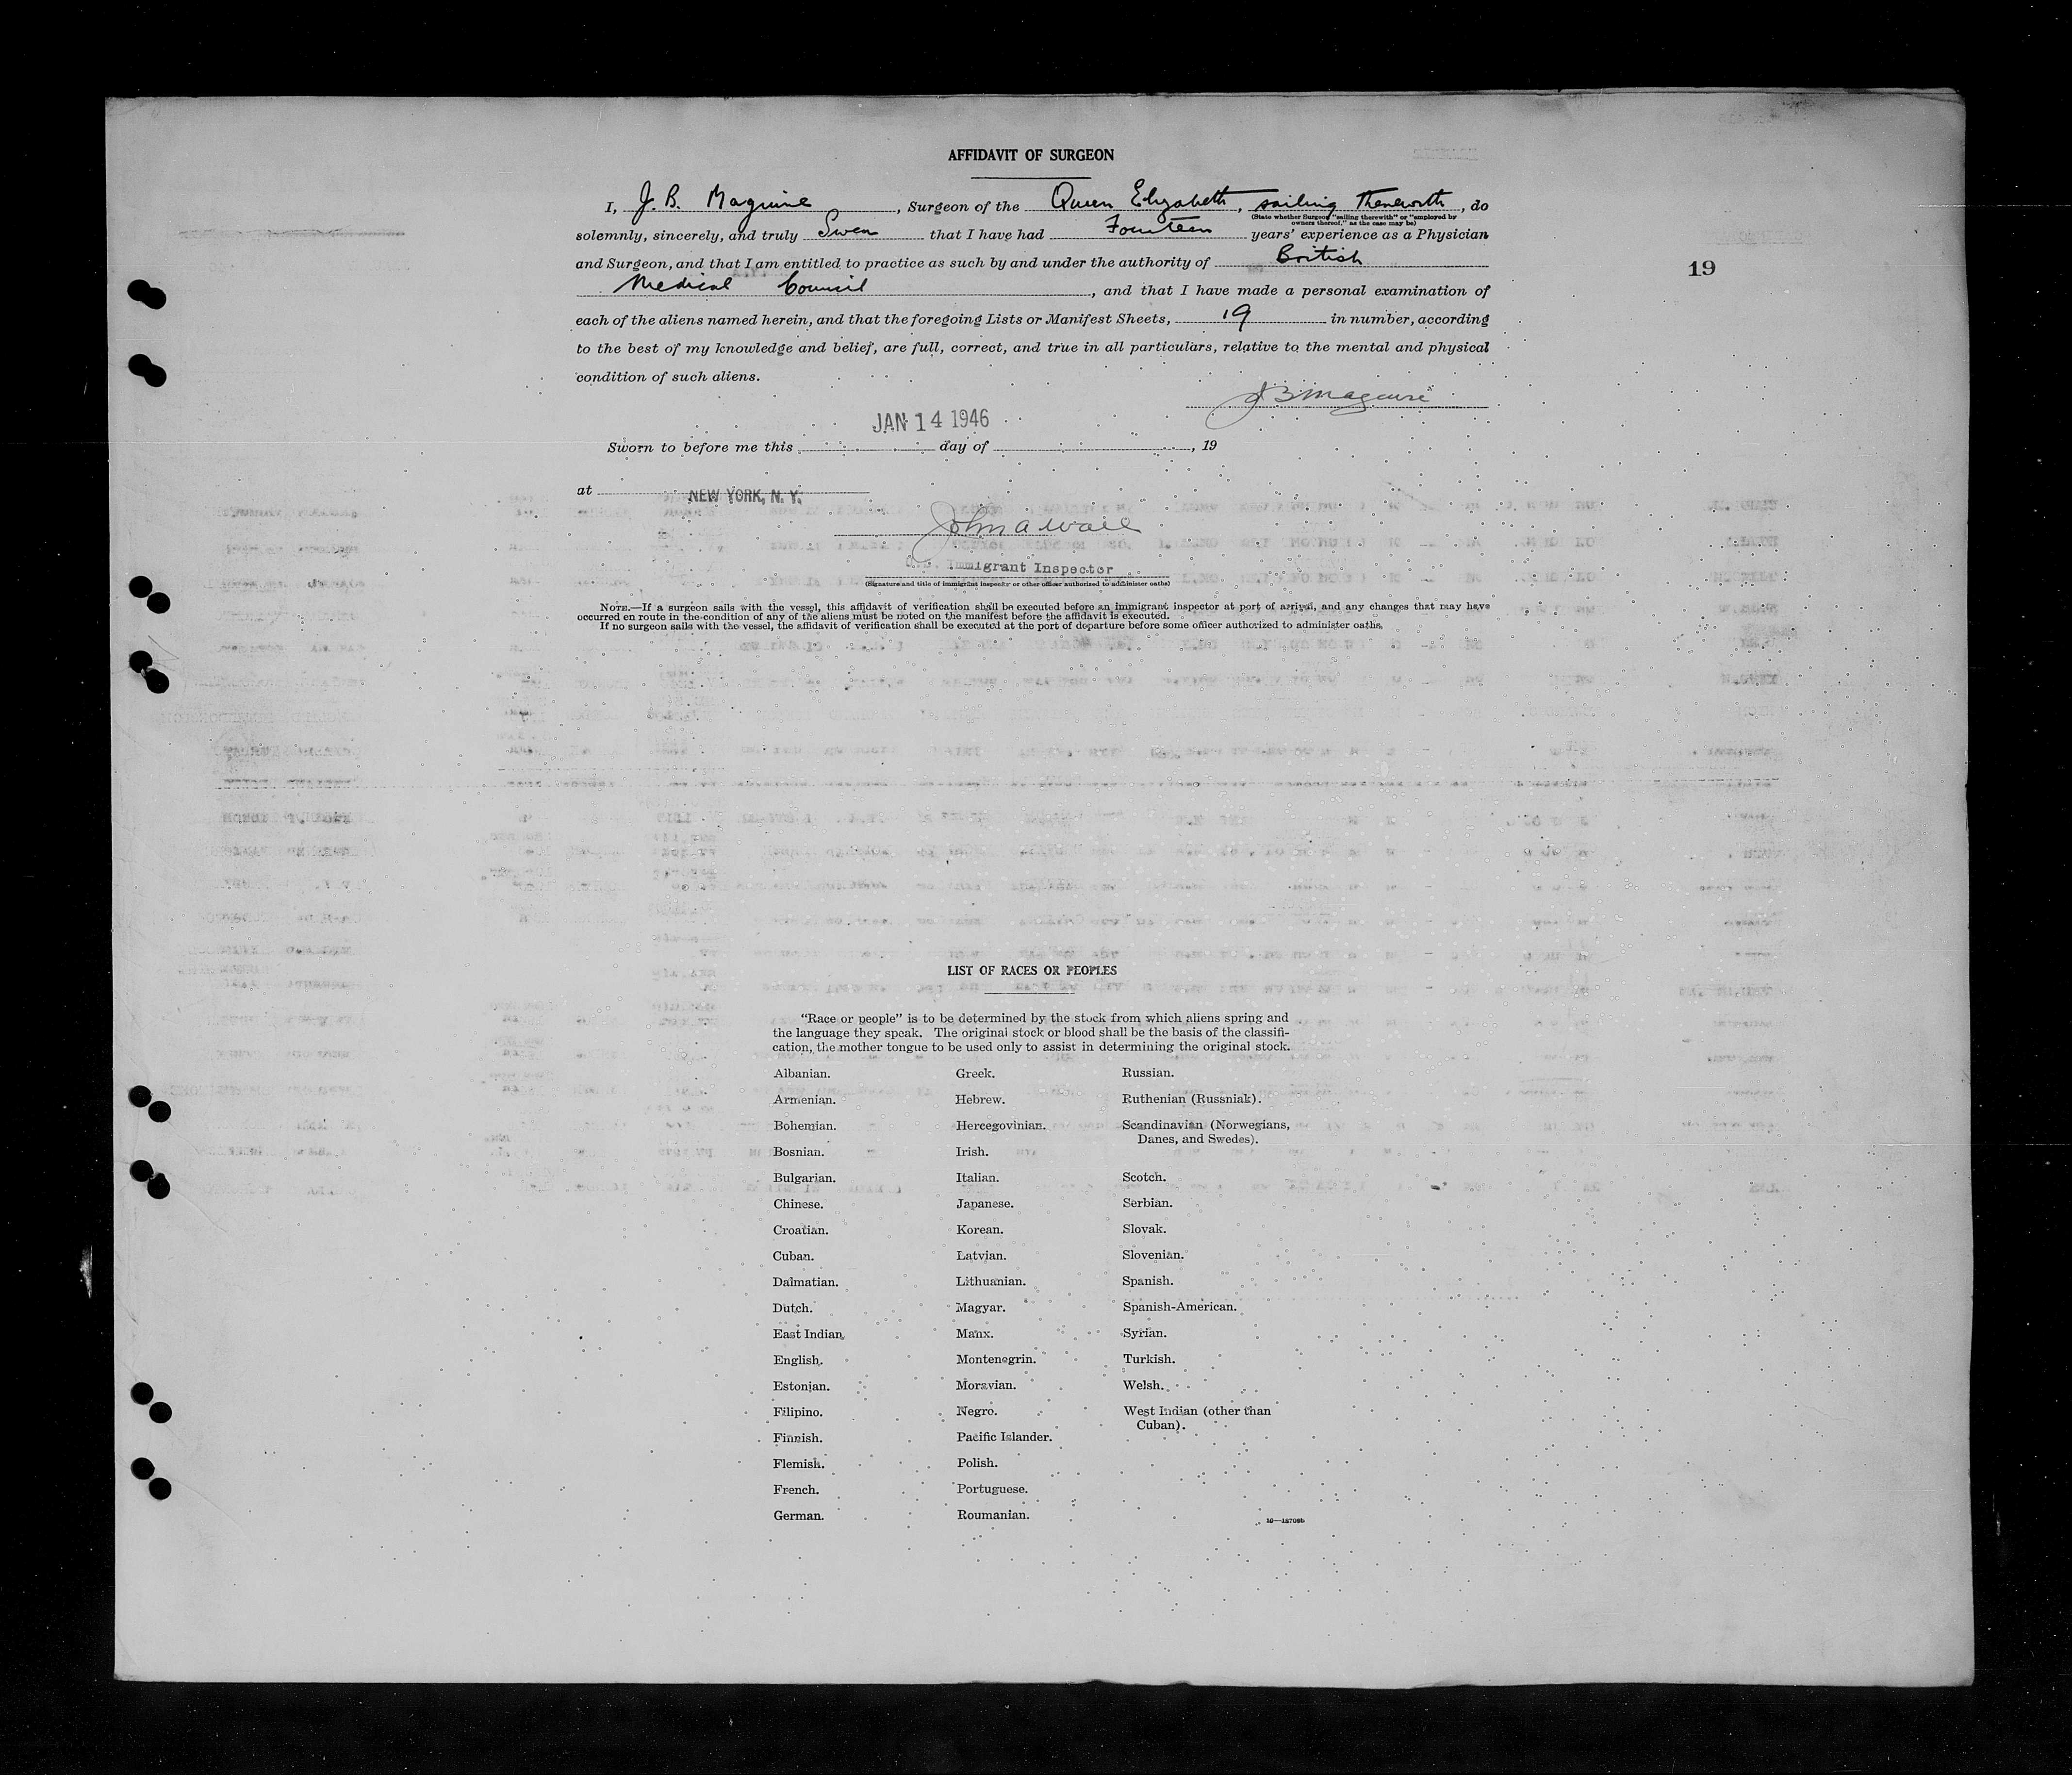 AFFIDAVIT OF SURGEON
I, J. B. Maguire, Surgeon of the Queen Elizabeth, sailing therewith, do
(State whether Surgeon "sailing therewith" or "employed by
owners thereof," as the case may be)
solemnly, sincerely, and truly Swear that I have had Fourteen years' experience as a Physician
and Surgeon, and that I am entitled to practice as such by and under the authority of British
19
Medical Council, and that I have made a personal examination of
each of the aliens named herein, and that the foregoing Lists or Manifest Sheets, 19 in number, according
to the best of my knowledge and belief, are full, correct, and true in all particulars, relative to the mental and physical
condition of such aliens.
J B Maguire
JAN 14 1946
Sworn to before me this day of , 19
at NEW YORK, N. Y.
John A Wall
U.S. Immigrant Inspector
(Signature and title of immigrant inspector or other officer authorized to administer oaths)
NOTE.—If a surgeon sails with the vessel, this affidavit of verification shall be executed before an immigrant inspector at port of arrival, and any changes that may have
occurred en route in the condition of any of the aliens must be noted on the manifest before the affidavit is executed.
If no surgeon sails with the vessel, the affidavit of verification shall be executed at the port of departure before some officer authorized to administer oaths.
LIST OF RACES OR PEOPLES
"Race or people" is to be determined by the stock from which aliens spring and
the language they speak. The original stock or blood shall be the basis of the classifi-
cation, the mother tongue to be used only to assist in determining the original stock.
Albanian. Greek. Russian.
Armenian. Hebrew. Ruthenian (Russniak).
Bohemian. Hercegovinian. Scandinavian (Norwegians,
Danes, and Swedes).
Bosnian. Irish.
Bulgarian. Italian. Scotch.
Chinese. Japanese. Serbian.
Croatian. Korean. Slovak.
Cuban. Latvian. Slovenian.
Dalmatian. Lithuanian. Spanish.
Dutch. Magyar. Spanish-American.
East Indian. Manx. Syrian.
English. Montenegrin. Turkish.
Estonian. Moravian. Welsh.
Filipino. Negro. West Indian (other than
Cuban).
Finnish. Pacific Islander.
Flemish. Polish.
French. Portuguese.
German. Roumanian.